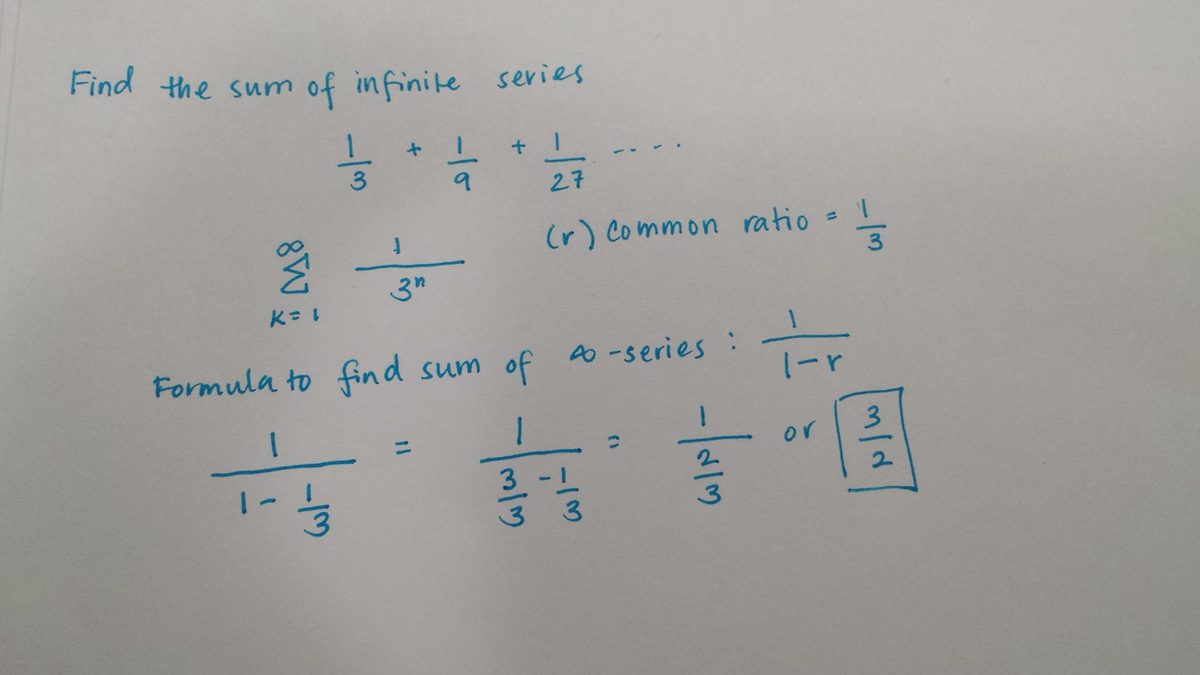 Find the sum of infinite series
1/3 + 1/9 + 1/27 ....
∞ Σ K=1 1/3ⁿ (r) common ratio = 1/3
Formula to find sum of ∞-series : 1/(1-r)
1/(1 - 1/3) = 1/(3/3 - 1/3) = 1/(2/3) or 3/2